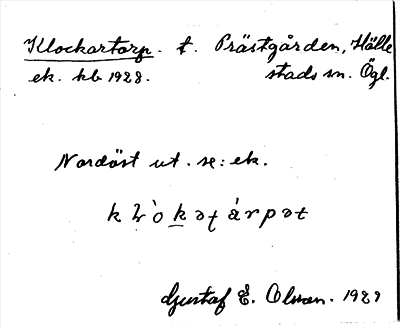 Klockartorp. t. Prästgården, Hälle
ek. kb 1928. stads sn. Ögl.
Nordöst ut. se: ek.
Gustaf E. Olsson. 1929